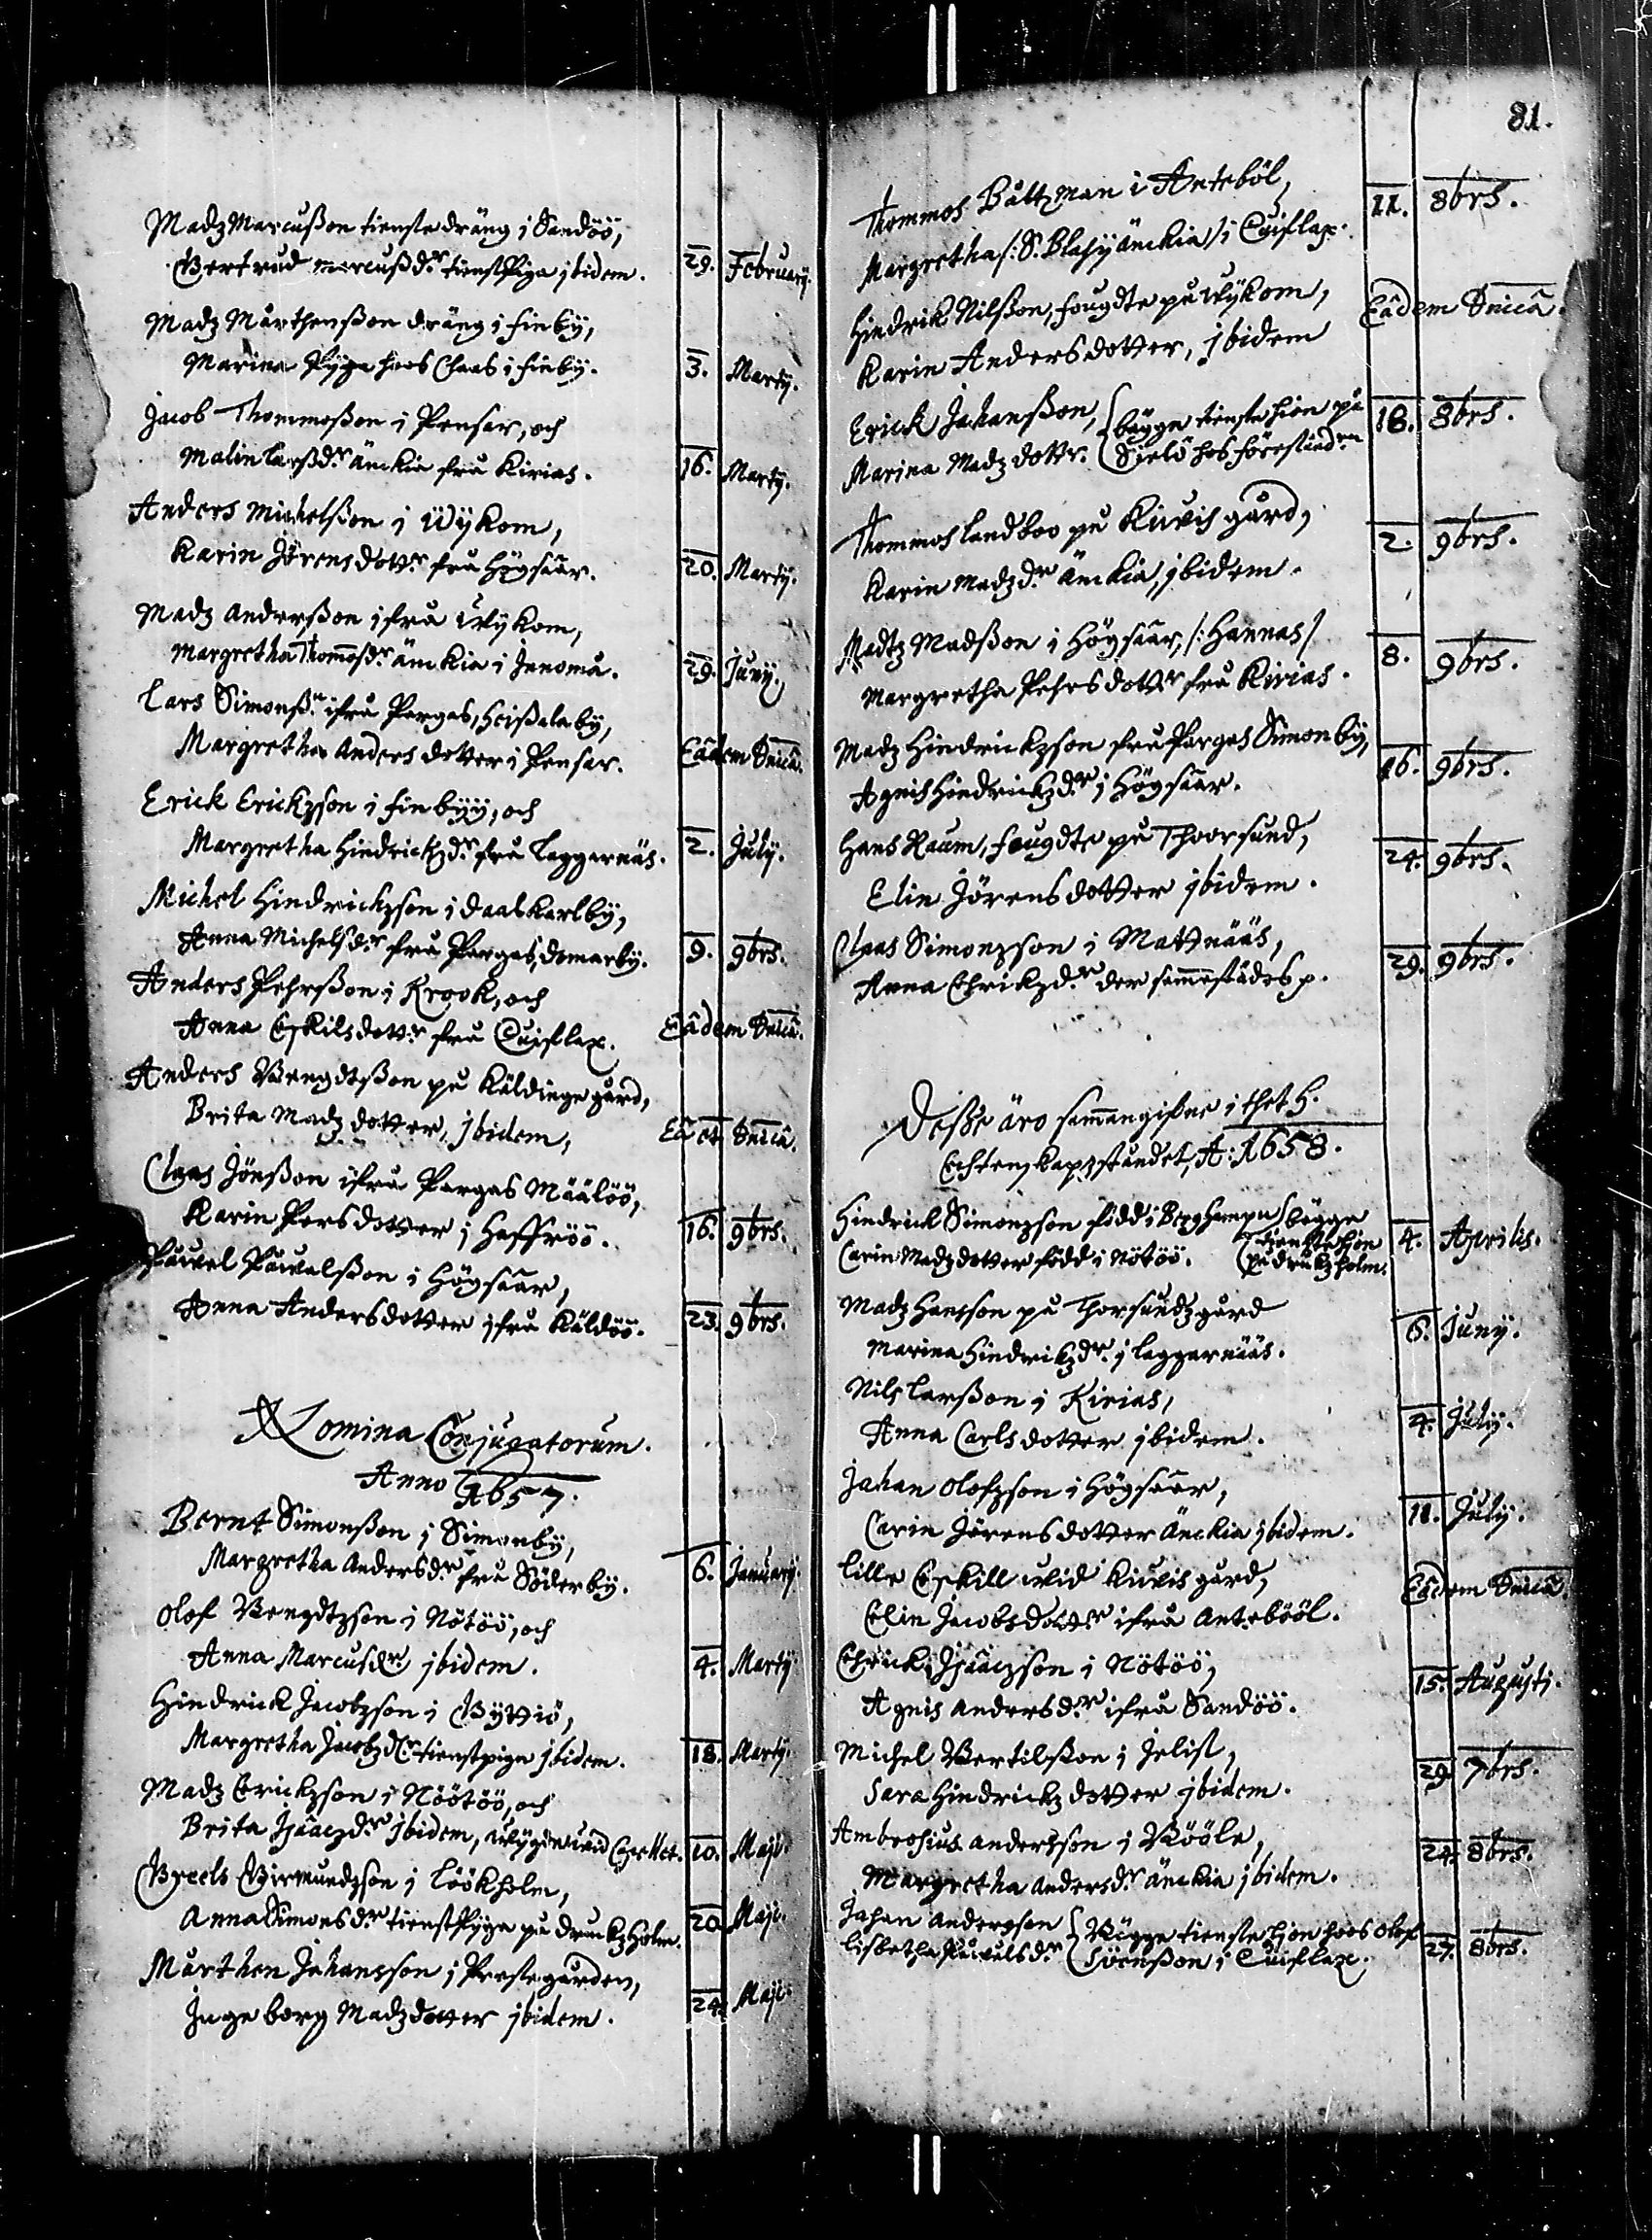 Madz Marcußon tienstedräng i Sandöö,
Gertrud Marcußd:r tienstPiga ibidem. 29. February.
Madz Mårthenßon dräng i Finby,
Marina Pyga hoos Claas i Finby. 3. Marty.
Jacob Thommoßon i Pensar, och
Malin Larßd:r änckia frå Kirias. 16. Marty.
Anders Michelßon i Wykom,
Karin Jörensdott:r frå Högsåår. 20. Marty.
Madz Anderßon ifrå Wykom,
Margretha Thomosd:r änckia i Jenomå. 29. Juny.
Lars Simonß: ifrå Pargas, Heißala by,
Margretha Anders dotter i Pensar. Eâdem Dnicâ.
Erick Erickzson i Finbyy, och
Margretha Hindrickzd:r frå Laggarnäs. 2. July.
Michel Hindrickzson i Daalkarlby,
Anna Michelsd:r frå Pargas, Domarby. 9. 9brs.
Anders Pehrßon i Krook, och
Anna Eskilsdott:r frå Cuislax. Eâdem Dnicâ.
Anders Bengdtßon på Käldinge gård,
Brita Madz dotter, ibidem, Eâ et Dnicâ.
Claas Jönßon ifrå Pargas Määlöö,
Karin Persdotter i Haffröö. 16. 9brs.
Påwel Påwelßon i Högsåår,
Anna Andersdotter ifrå Käldöö. 23. 9brs.
Nomina Conjugatorum.
Anno 1657.
Bernt Simonßon i Simonby,
Margretha Andersd:r frå Söderby. 6. January.
Olof Bengdtzson i Nötöö, och
Anna Marcusd:r ibidem. 4. Marty
Hindrick Jacobzson i Gyttiö,
Margretha Jacobzd:r tienstpiga ibidem. 18. Marty.
Madz Erickzson i Nöötöö, och
Brita Isaaczd:r ibidem, wid 10. Maji.
Greels Girmundzson i Löökholm,
Anna Simonsd:r tienstPyga på Drackzholm. 20. Maji.
Mårthen Johansson i Prestegården,
Ingeborg Madzdotter ibidem. 24. Maji.
81.
Thommos Båttzman i Anteböl,
Margretha /: S. Blasy änckia / i Cuislax. 11. 8brs.
Hindrik Nilßon, fougdte på Wykom,
Karin Andersdotter, ibidem Eâdem Dnicâ.
Erick Johanßon, bägge tienstehion på
Marina Madz dott:r Siälö hos förestånd:n 18. 8brs.
Thommos Landboo på Kiwis gård,
Karin Madzd:r änckia, ibidem. 2. 9brs.
Madtz Madßon i Högsåår, /: Hannas /
Margretha Pehrsdott:r frå Kirias. 8. 9brs.
Madz Hindrickzson frå Pargas Simonby,
Agnis Hindrickzd:r i Högsåår. 16. 9brs.
Hans Raum, fougdte på Thoorsund,
Elin Jörensdotter ibidem. 24. 9brs.
Claas Simonzson i Mattnääs,
Anna Ehrikzd:r der sammestädes p. 29. 9brs.
Deße äro sammangifne i thet H.
Echtenskapzståndet, A: 1658.
Hindrick Simonzson född i Berghamn bägge
tiänstehion
Carin Madzdotter född i Nötöö. på Dråkzholm. 4. Aprilis.
Madz Hansson på Thorsundz gård
Marina Hindrikzd:r i Laggarnääs. 6. Juny.
Nils Larßon i Kirias,
Anna Carlsdotter ibidem. 4. July.
Johan Olofzson i Högsåår,
Carin Jörensdotter änckia ibidem. 11. July.
Lille Eskill wid Kiwis gård,
Elin Jacobsdott:r ifrå Antebööl. Eâdem Dnicâ.
Ehrick Isaaczson i Nötöö,
Agnis Andersd:r ifrå Sandöö. 15. Augusti.
Michel Bertilßon i Jelist,
Sara Hindrickz dotter ibidem. 29. 7brs.
Ambrosius Andersson i Bööle,
Margretha Andersd:r änckia ibidem. 24. 8brs.
Johan Andersson Bägge tienstehion hoos Olof
Lisbetha Påwelsd:r Swenßon i Cuislax. 27. 8brs.